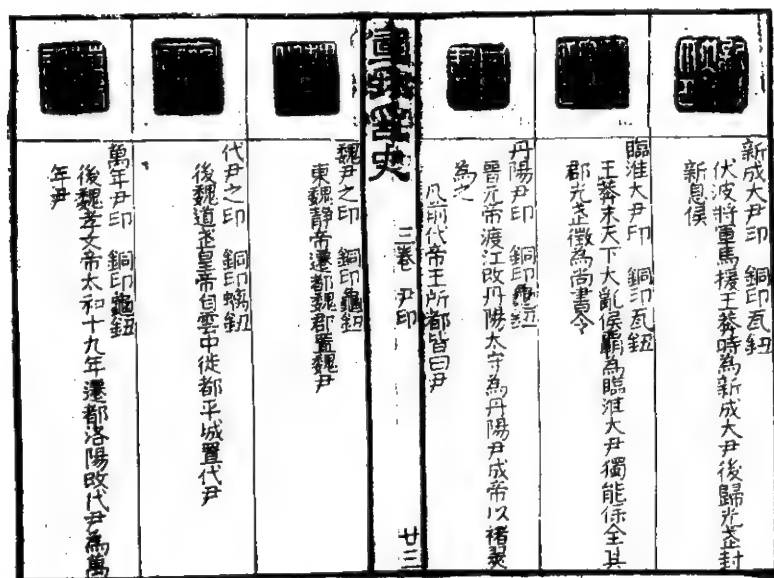 新成大尹印　銅印瓦鈕
伏波將軍馬援王莽時為新成大尹後歸光武封
新息侯
臨淮大尹印　銅印瓦鈕
王莽末天下大亂侯霸為臨淮大尹獨能保全其
郡光武徵為尚書令
丹陽尹印　銅印龜鈕
晉元帝渡江改丹陽太守為丹陽尹成帝以褚翜
為之
凡前代帝王所都皆曰尹
宣和印史　三卷　尹印　廿三
魏尹之印　銅印龜鈕
東魏静帝遷都魏郡置魏尹
代尹之印　銅印螭鈕
後魏道武皇帝自雲中徙都平城置代尹
萬年尹印　銅印龜鈕
後魏孝文帝太和十九年遷都洛陽改代尹為萬
年尹